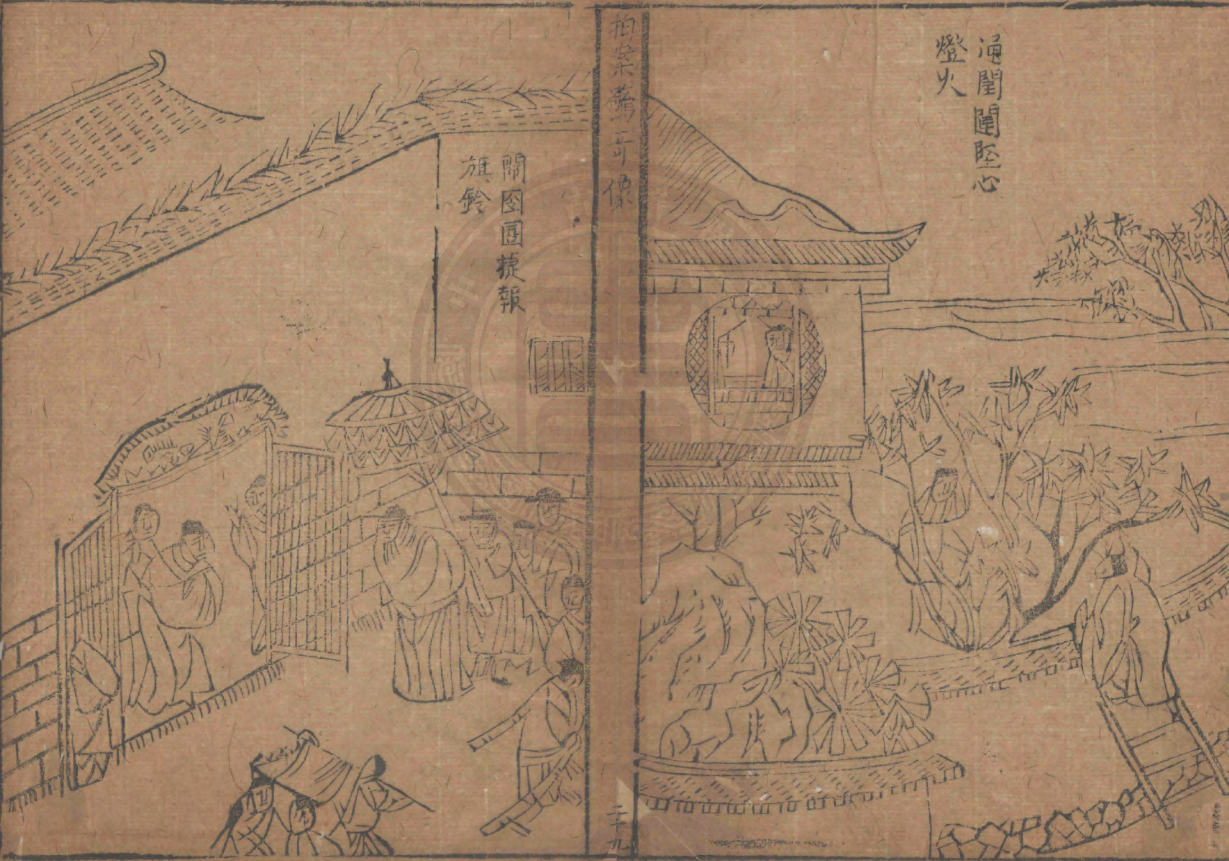 通閨闥堅心
燈火
拍案驚奇像
二十九
鬧囹圄捷報
旗鈴